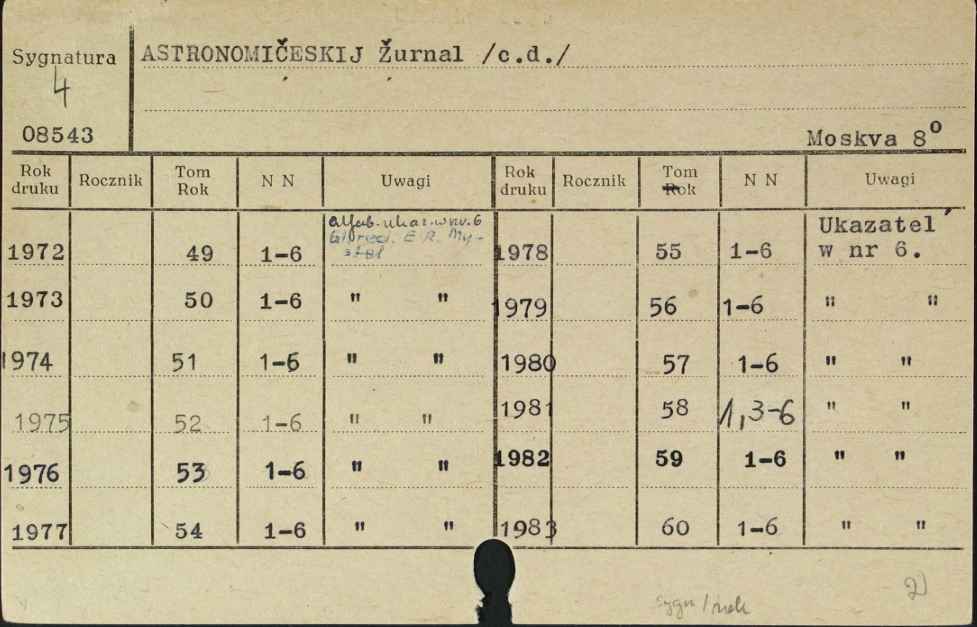 Sygnatura ASTRONOMIČESKIJ Žurnal /c.d./
4
08543 Moskva 8⁰
Rok druku Rocznik Tom Rok N N Uwagi Rok druku Rocznik Tom Rok N N Uwagi
1972 49 1-6 w nr. 6 1978 55 1-6 Ukazatel´ w nr 6.
1973 50 1-6 " " 1979 56 1-6 " "
1974 51 1-6 " " 1980 57 1-6 " "
1975 52 1-6 " " 1981 58 1,3-6 " "
1976 53 1-6 " " 1982 59 1-6 " "
1977 54 1-6 " " 1983 60 1-6 " "
2)